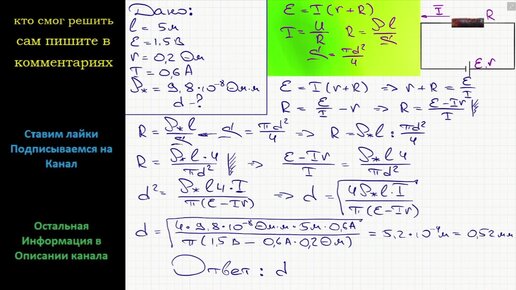 кто смог решить
сам пишите в
комментариях
Ставим лайки
Подписываемся на
Канал
Остальная
Информация в
Описании канала
Дано:
l = 5м
ℰ = 1,5В
r = 0,2 Ом
I = 0,6А
ρ* = 9,8·10⁻⁸ Ом·м
d - ?
ℰ = I(r+R)
I = U/R R = ρl/S
S = πd²/4
I R
ℰ, r
ℰ = I(r+R) ⇒ r+R = ℰ/I
R = ℰ/I − r ⇒ R = (ℰ−Ir)/I
R = ρ*l/S − S = πd²/4 ⇒ R = ρ*l : πd²/4
R = ρ*l·4/πd² ⇒ (ℰ−Ir)/I = ρ*l4/πd²
d² = ρ*l4·I/π(ℰ−Ir) ⇒ d = √(4ρ*l·I/π(ℰ−Ir))
d = √(4·9,8·10⁻⁸Ом·м·5м·0,6А/π(1,5В − 0,6А·0,2Ом)) = 5,2·10⁻⁴м = 0,52мм
Ответ: d